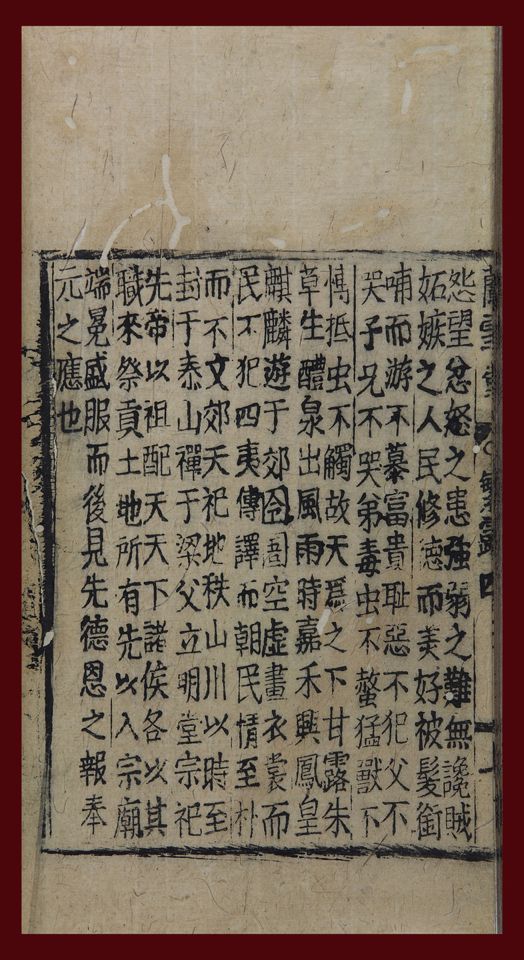 怨望忿怒之患強弱之難無讒賊
妬嫉之人民修德而美好被髮銜
哺而游不慕富貴恥惡不犯父不
哭子兄不哭弟毒虫不螫猛獸不
慱抵虫不觸故天爲之下甘露朱
草生醴泉出風雨時嘉禾興鳳皇
麒麟遊于郊囹圄空虛畫衣裳而
民不犯四夷傳譯而朝民情至朴
而不文郊天祀地秩山川以時至
封于泰山禪于梁父立明堂宗祀
先帝以祖配天天下諸侯各以其
職來祭貢土地所有先以入宗廟
端冕盛服而後見先德恩之報奉
元之應也